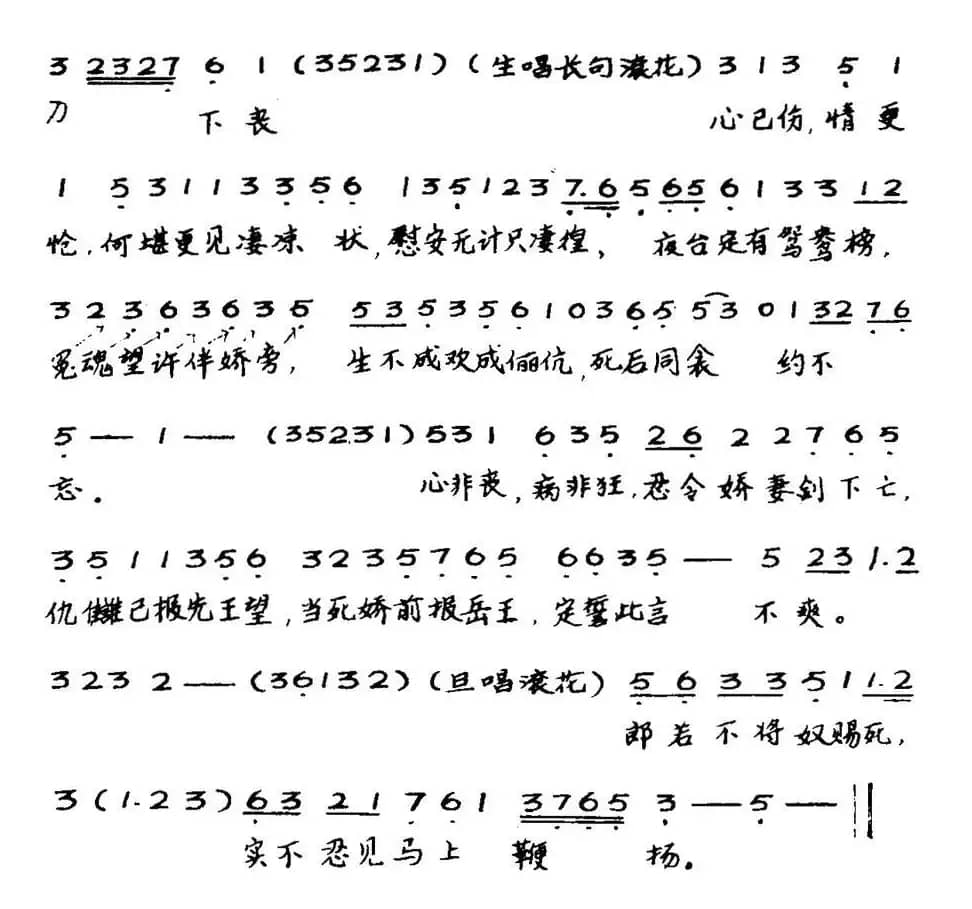 3 2327 6 1 (35231) (生唱长句滚花) 3 1 3 5 1
刀 下丧 心已伤,情更
1 5 3 1 1 3 3 5 6 1 3 5 1 2 3 7.6 5 65 6 1 3 3 12
怆,何堪更见凄凉 状,慰安无计只凄徨、 夜台定有鸳鸯榜,
3 2 3 6 3 6 3 5 53 5 3 5 6 1 0 3 6 5 53 0 1 32 76
冤魂望许伴娇旁, 生不成欢成俪伉,死后同衾 约不
5 — 1 — (35231) 5 3 1 6 3 5 26 2 2 7 6 5
忘。 心非丧,病非狂,忍令娇妻剑下亡,
3 5 1 1 3 5 6 3 2 3 5 7 6 5 6 6 3 5 — 5 23 1.2
仇雠已报先王望,当死娇前报岳王,定誓此言 不爽。
3 2 3 2 — (36132) (旦唱滚花) 5 6 3 3 5 1 1.2
郎若不将奴赐死,
3 (1.2 3) 63 21 7 6 1 3765 3 — 5 — ‖
实不忍见马上 鞭 扬。